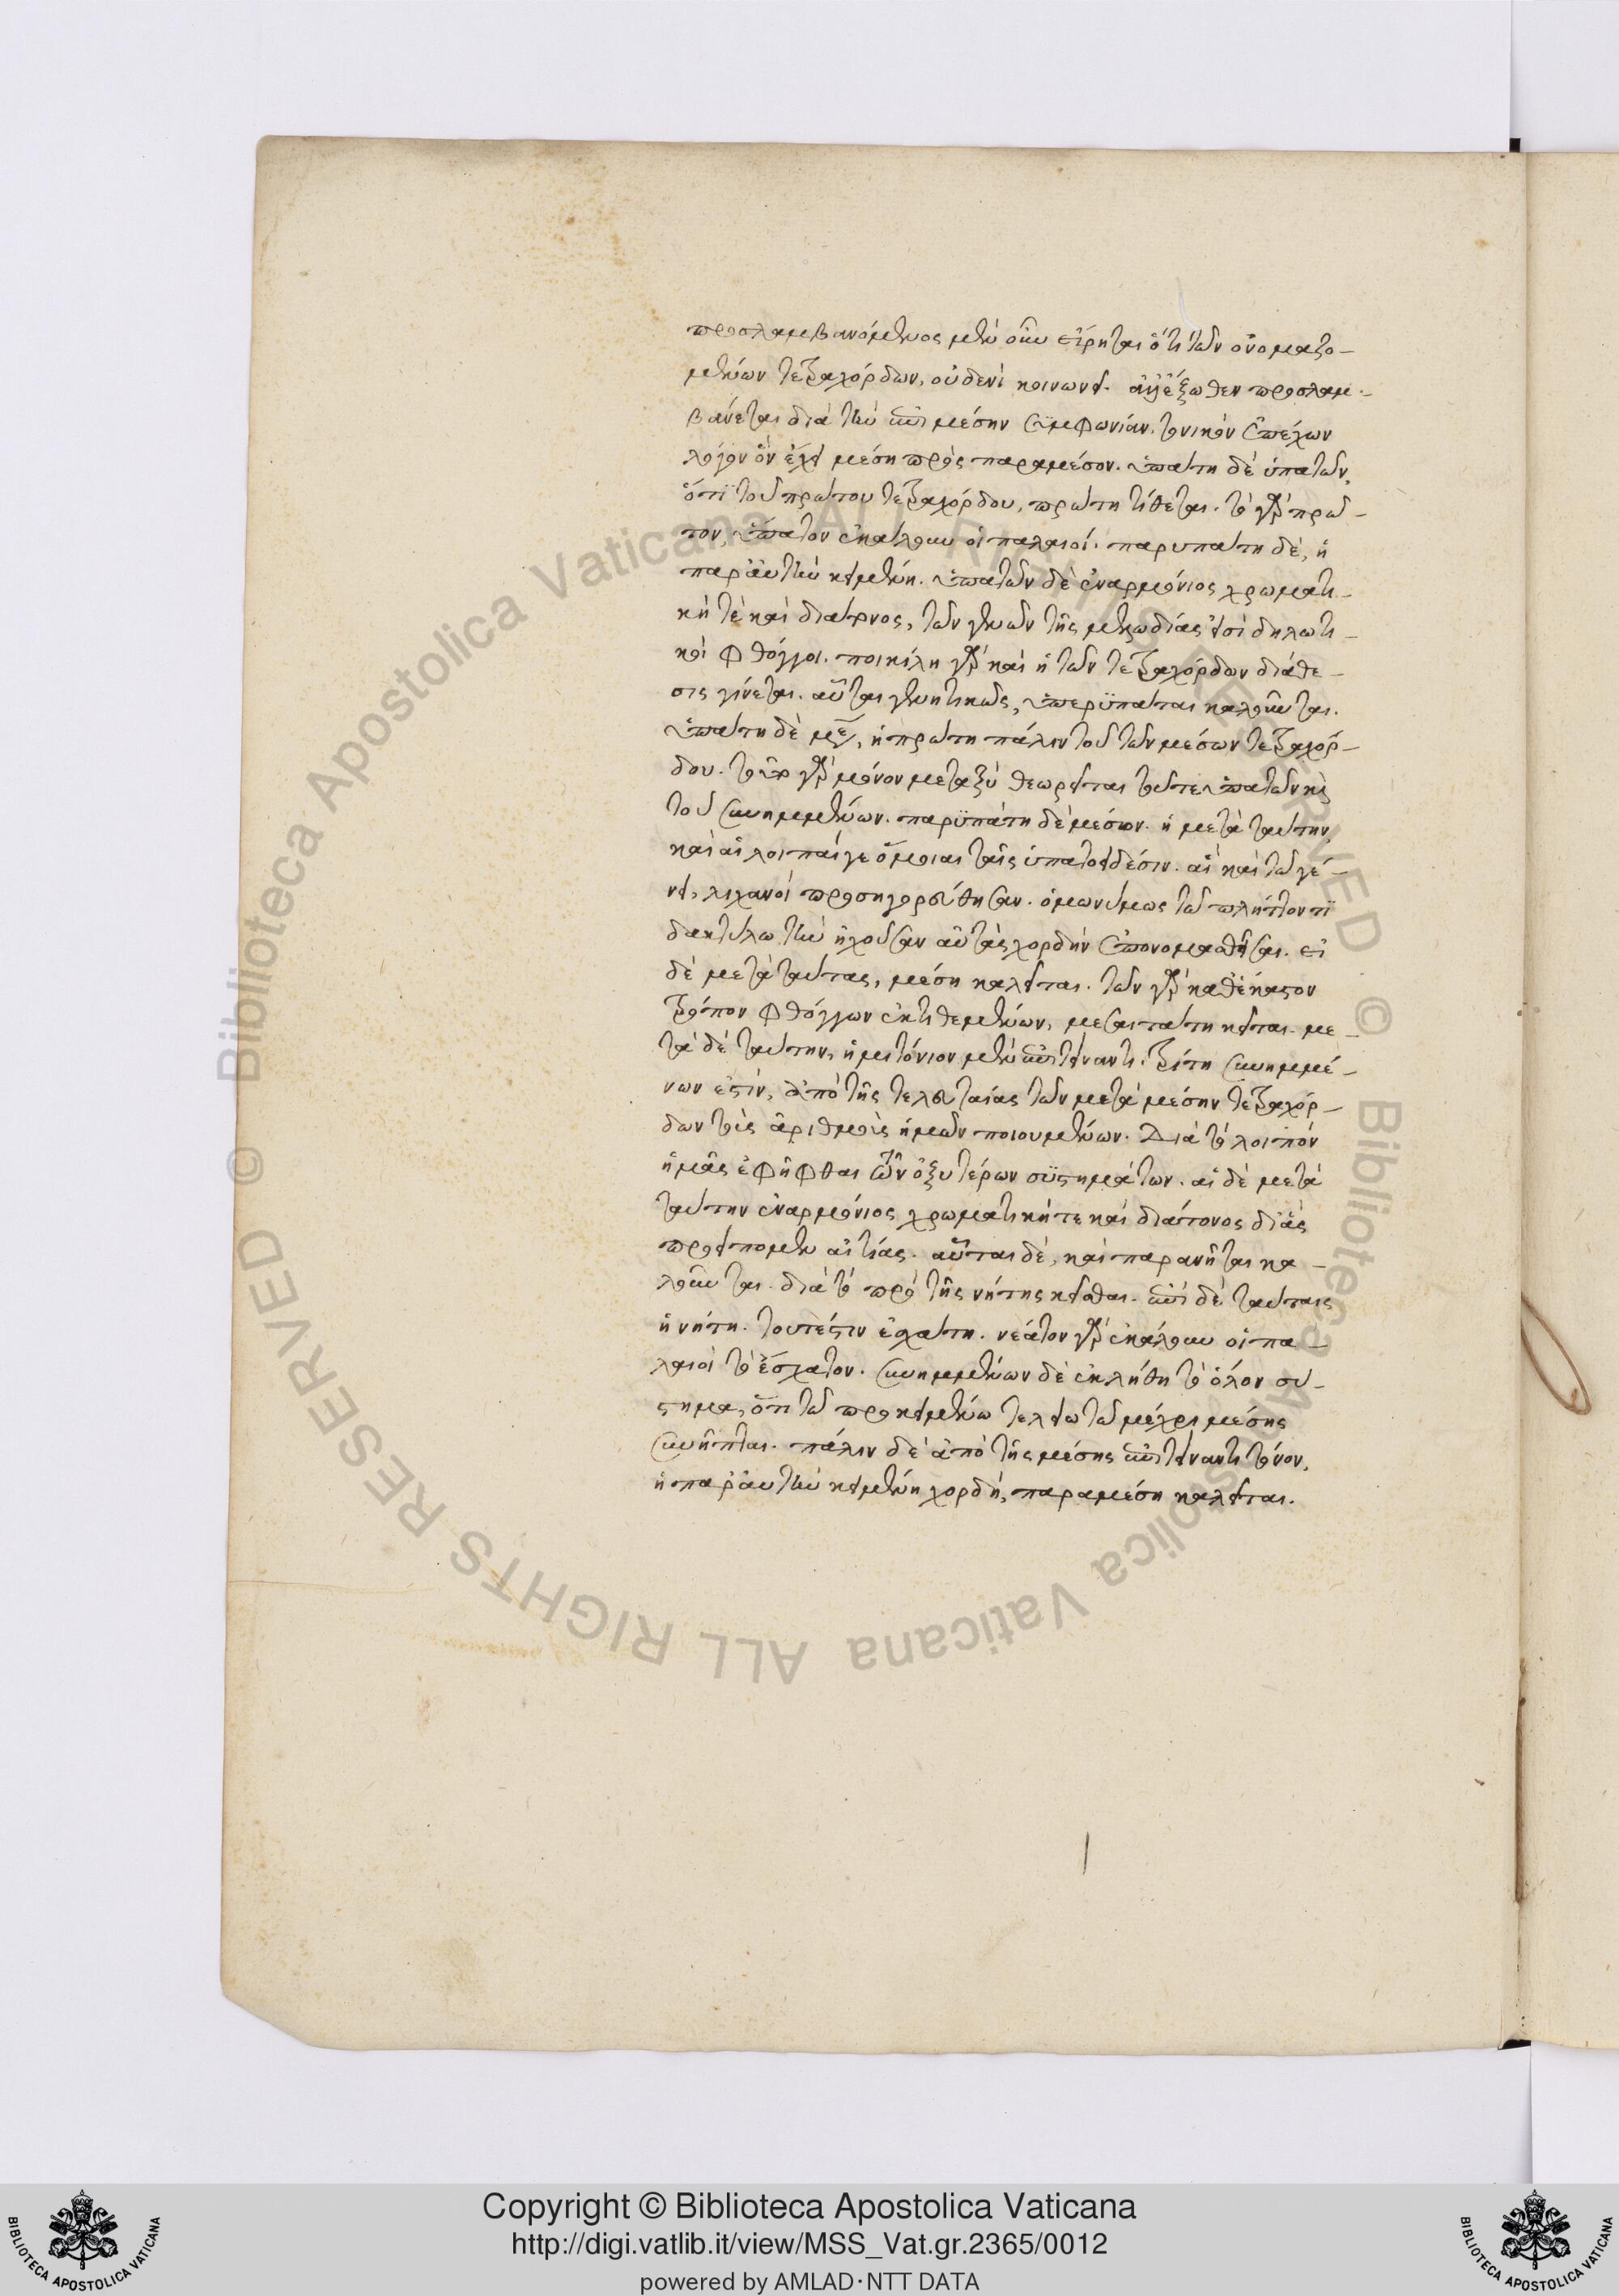 προσλαμβανόμενος μὲν οὖν εἴρηται ὅτι τῶν ὀνομαζο-
μένων τετραχόρδων, οὐδενὶ κοινωνεῖ. ἀλλ' ἔξωθεν προσλαμ-
βάνεται διὰ τὴν ἐπὶ μέσην συμφωνίαν. τονικὸν ἐπέχων
λόγον ὃν ἔχει μέση πρὸς παραμέσον. ὑπάτη δὲ ὑπατῶν,
ὅτι τοῦ πρώτου τετραχόρδου, πρώτη τίθεται. τὸ γὰρ πρῶ-
τον, ὕπατον ἐκάλουν οἱ παλαιοί. παρυπάτη δὲ, ἡ
παρ' αὐτὴν κειμένη. ὑπατῶν δὲ ἐναρμόνιος χρωματι-
κή τε καὶ διάτονος, τῶν γενῶν τῆς μελῳδίας εἰσὶ δηλωτι-
κοὶ φθόγγοι. ποικίλη γὰρ καὶ ἡ τῶν τετραχόρδων διάθε-
σις γίνεται. αὗται γενητικῶς, ὑπερϋπάται καλοῦνται.
ὑπάτη δὲ μέσ, ἡ πρώτη πάλιν τοῦ τῶν μέσων τετραχόρ-
δου. τοῦτο γὰρ μόνον μεταξὺ θεωρεῖται τοῦ τε ὑπατῶν καὶ
τοῦ συνημμένων. παρϋπάτη δὲ μέσων. ἡ μετὰ ταύτην
καὶ αἱ λοιπαί γε ὅμοιαι ταῖς ὑπατοειδέσιν. αἳ καὶ τῷ γέ-
νει, λιχανοὶ προσηγορεύθησαν. ὁμωνύμως τῷ πλήττοντϊ
δακτύλῳ τὴν ἠχοῦσαν αὐτὰς χορδὴν ἐπονομασθεῖσαι. εἰ
δὲ μετὰ ταύτας, μέση καλεῖται. τῶν γὰρ καθ' ἕκαστον
τρόπον φθόγγων ἐκτιθεμένων, μεσαιτάτη κεῖται. με-
τὰ δὲ ταύτην, ἡμιτόνιον μὲν ἐπιτείναντι. τρίτη συνημμέ-
νων ἐστίν, ἀπὸ τῆς τελευταίας τῶν μετὰ μέσην τετραχόρ-
δων τοὺς ἀριθμοὺς ἡμῶν ποιουμένων. Διὰ τὸ λοιπὸν
ἡμᾶς ἐφῆφθαι τῶν ὀξυτέρων συστημάτων. αἱ δὲ μετὰ
ταύτην ἐναρμόνιος χρωματική τε καὶ διάτονος δι' ἃς
προείπομεν αἰτίας. αὗται δὲ, καὶ παρανῆται κα-
λοῦνται. διὰ τὸ πρὸ τῆς νήτης κεῖσθαι. ἐπὶ δὲ ταύταις
ἡ νήτη. τουτέστιν ἐσχάτη. νέατον γὰρ ἐκάλουν οἱ πα-
λαιοὶ τὸ ἔσχατον. συνημμένων δὲ ἐκλήθη τὸ ὅλον σύ-
στημα, ὅτι τῷ προκειμένῳ τελείῳ τῷ μέχρι μέσης
συνῆπται. πάλιν δὲ ἀπὸ τῆς μέσης ἐπιτείναντι τόνον,
ἡ παρ' αὐτὴν κειμένη χορδὴ, παραμέση καλεῖται.
Copyright © Biblioteca Apostolica Vaticana
http://digi.vatlib.it/view/MSS_Vat.gr.2365/0012
powered by AMLAD·NTT DATA
BIBLIOTECA APOSTOLICA VATICANA
BIBLIOTECA APOSTOLICA VATICANA
© Biblioteca Apostolica Vaticana ALL RIGHTS RESERVED
© Biblioteca Apostolica Vaticana ALL RIGHTS RESERVED